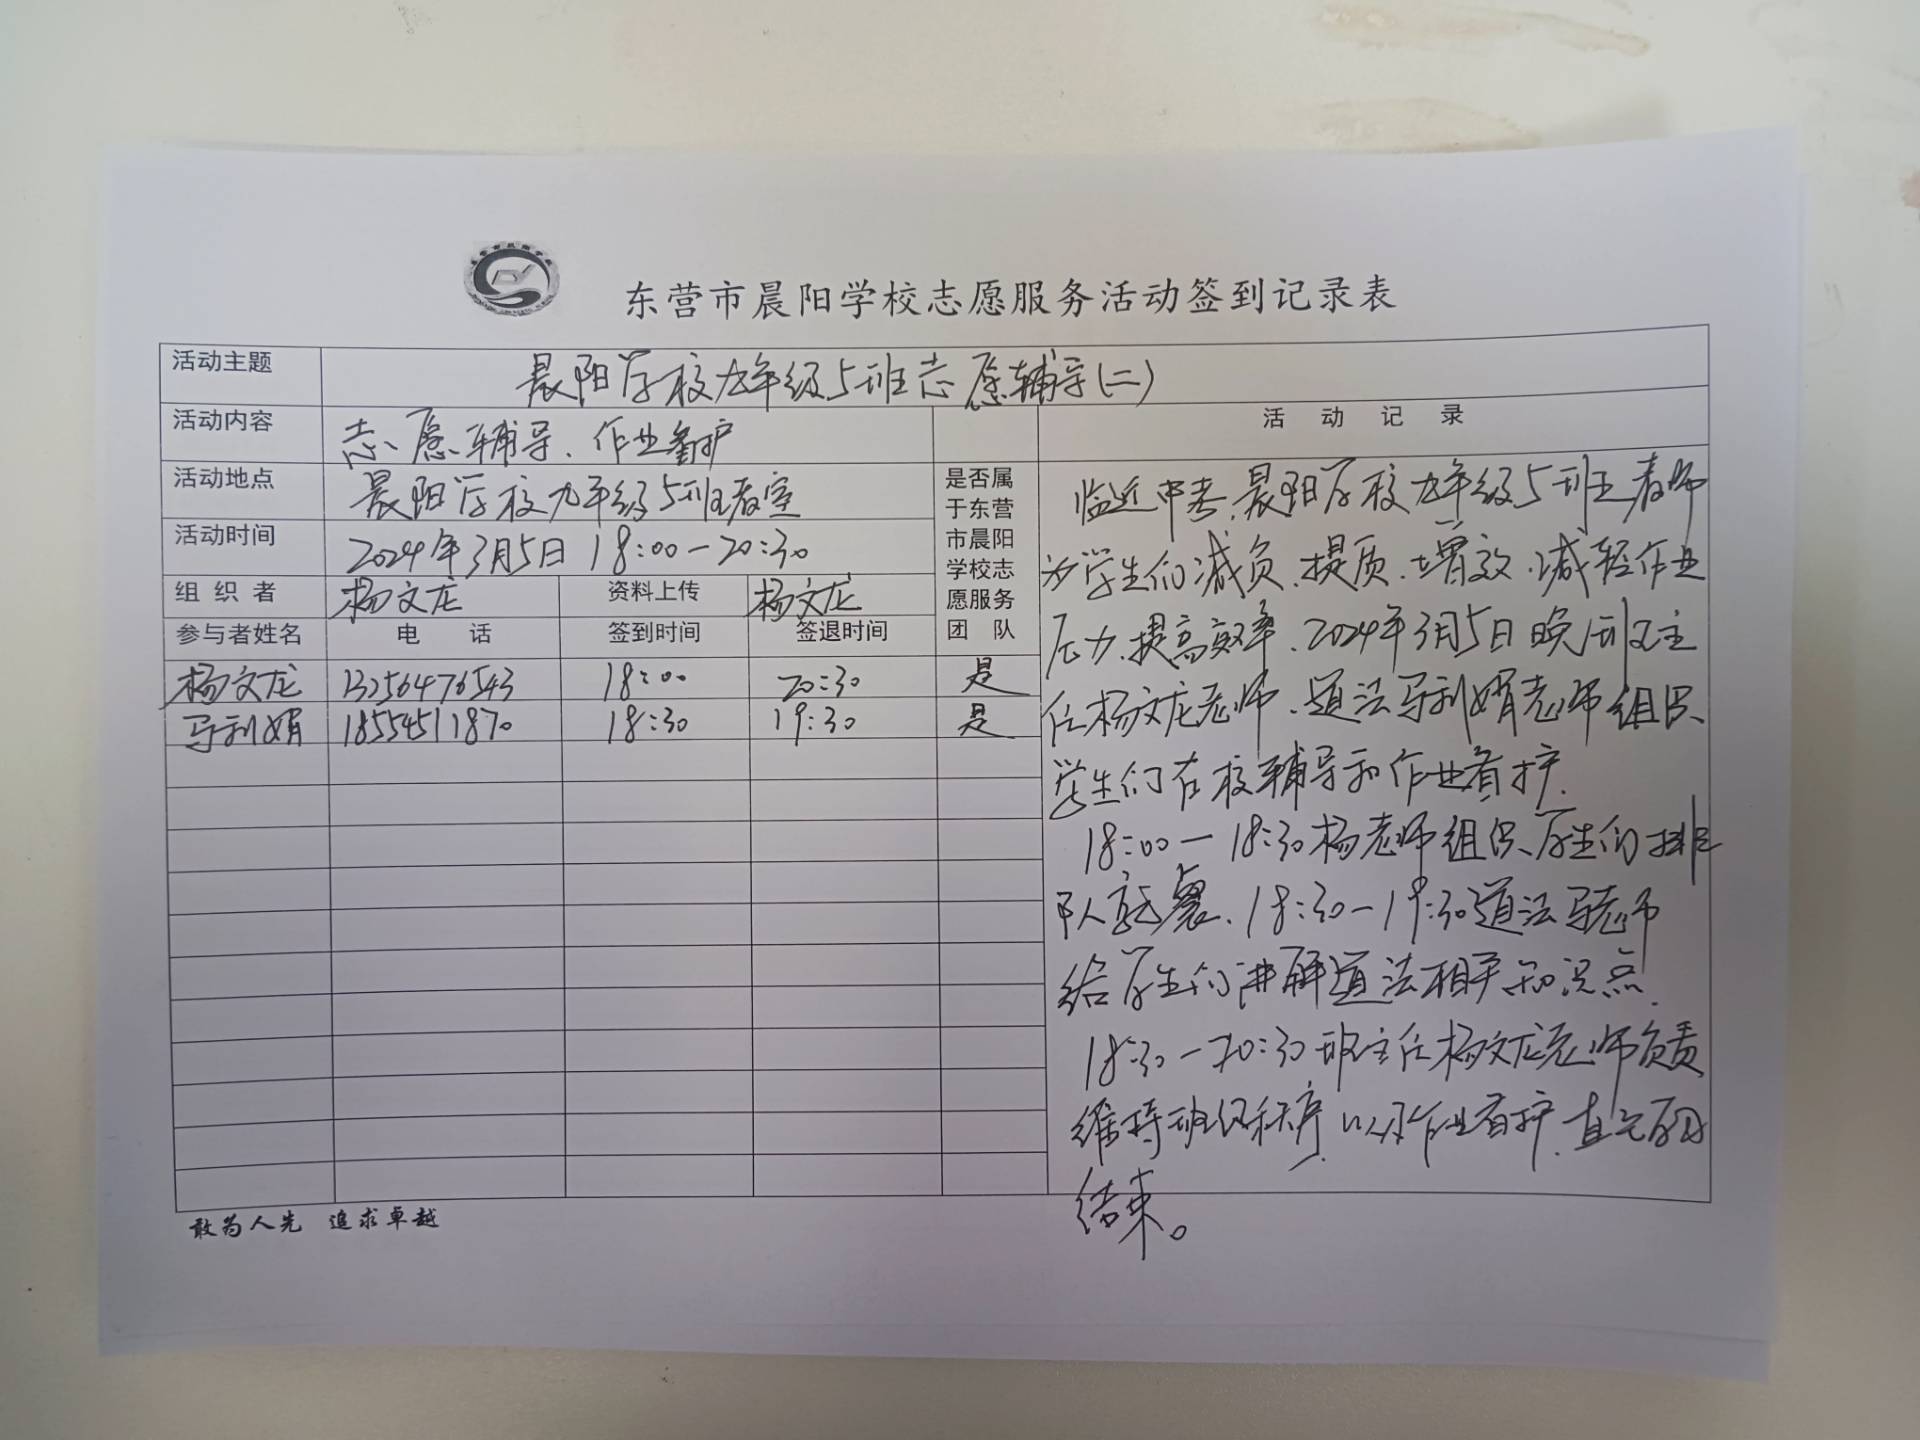 东营市晨阳学校志愿服务活动签到记录表
活动主题 晨阳学校九年级5班志愿辅导(二)
活动内容 志愿辅导、作业看护
活动地点 晨阳学校九年级5班教室
活动时间 2024年3月5日 18:00—20:30
组织者 杨文龙 资料上传 杨文龙
参与者姓名 电话 签到时间 签退时间
是否属
于东营
市晨阳
学校志
愿服务
团队
杨文龙 13256476543 18:00 20:30 是
马利娟 18554511870 18:30 19:30 是
活动记录
临近中考,晨阳学校九年级5班老师
为学生们减负、提质、增效、减轻作业
压力、提高效率、2024年3月5日晚班主
任杨文龙老师、道法马利娟老师组织
学生们在校辅导和作业看护.
18:00—18:30杨老师组织学生们排
队就餐、18:30—19:30道法马老师
给学生们讲解道法相关知识点.
18:30—20:30班主任杨文龙老师负责
维持班级秩序,以及作业看护.直至
结束。
敢为人先 追求卓越